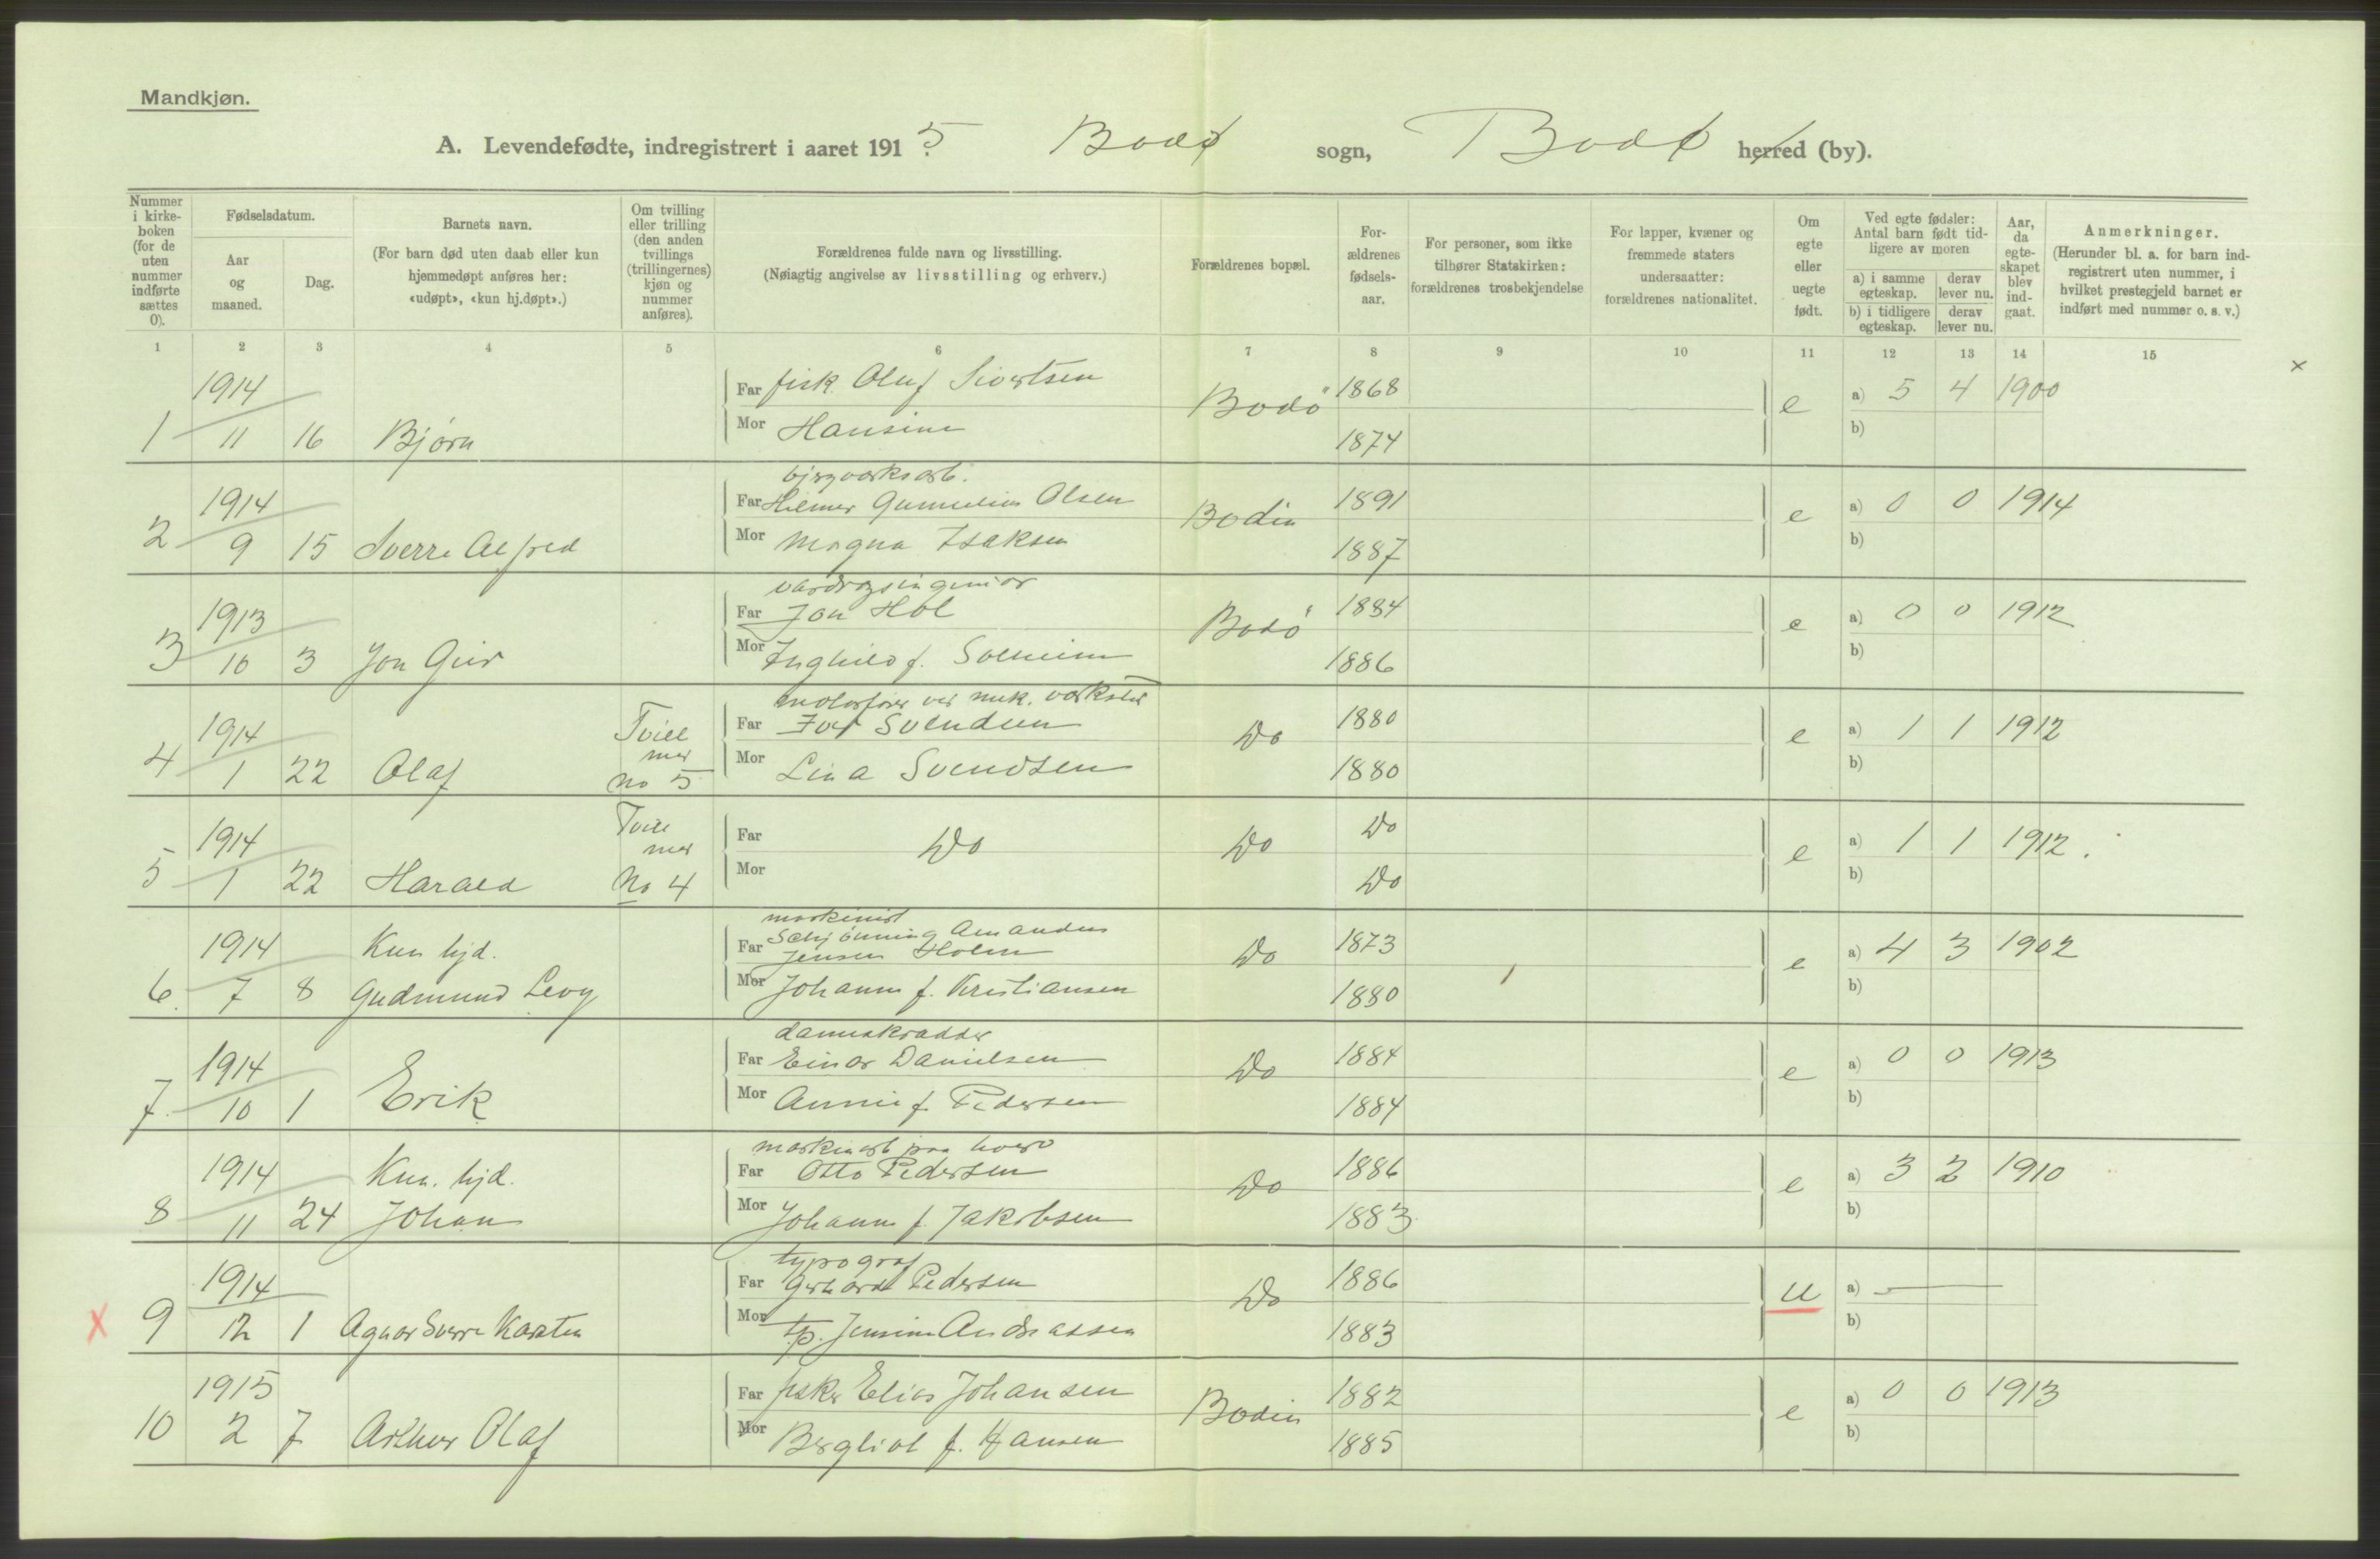 Mandkjøn.
A. Levendefødte, indregistrert i aaret 1915. Bodø sogn, Bodø herred (by).
Nummer i kirkeboken (for de uten nummer indførte sættes 0).
Fødselsdatum.
Aar og maaned.
Dag.
Barnets navn.
(For barn død uten daab eller kun hjemmedøpt anføres her: «udøpt», «kun hj.døpt».)
Om tvilling eller trilling (den anden tvillings (trillingernes) kjøn og nummer anføres).
Forældrenes fulde navn og livsstilling.
(Nøiagtig angivelse av livsstilling og erhverv.)
Forældrenes bopæl.
Forældrenes fødselsaar.
For personer, som ikke tilhører Statskirken: forældrenes trosbekjendelse
For lapper, kvæner og fremmede staters undersaatter: forældrenes nationalitet.
Om egte eller uegte født.
Ved egte fødsler: Antal barn født tidligere av moren
a) i samme egteskap. derav lever nu.
b) i tidligere egteskap. derav lever nu.
Aar, da egteskapet blev indgaat.
Anmerkninger.
(Herunder bl. a. for barn indregistrert uten nummer, i hvilket prestegjeld barnet er indført med nummer o. s. v.)
1 2 3 4 5 6 7 8 9 10 11 12 13 14 15
1914 Far fisk. Oluf Sivertsen 1868 a) 5 4 1900
1 11 16 Bjørn Mor Hansine Bodø 1874 e b)
Hilmer Olsen
1914 Far 1891 a) 0 0 1914
2 9 15 Sverre Alfred Mor Magna Isaksen Bodin 1887 e b)
vandvægsingeniør
1913 Far Jon Hol 1884 a) 0 0 1912
3 10 3 Jon Geir Mor Inghild f. Solheim Bodø 1886 e b)
motorfører ved mek. værksted
1914 Tvill Far Ivar Svendsen 1880 a) 1 1 1912
4 1 22 Olaf mer no 5 Mor Lina Svendsen Do 1880 e b)
1914 Tvill mer Far Do Do Do a) 1 1 1912
5 1 22 Harald No 4 Mor Do e b)
maskinist
1914 Kun hjd. Far Schjönning Amandus Jensen Holm Do 1873 a) 4 3 1902
6 7 8 Gudmund Levy Mor Johanna f. Kristiansen 1880 e b)
dameskrædder
1914 Far Einar Danielsen Do 1884 a) 0 0 1913
7 10 1 Erik Mor Annie f. Pedersen 1884 e b)
maskinist paa
1914 Kun. hjd. Far Otto Pedersen Do 1886 a) 3 2 1910
8 11 24 Johan Mor Johanna f. Jakobsen 1883 e b)
typograf
1914 Far Gerhard Pedersen Do 1886 u a)
9 12 1 Agnar Sverre Karsten Mor tp. Jensine Andreassen 1883 b)
1915 Far fisker Elias Johansen 1882 a) 0 0 1913
10 2 7 Arthur Olaf Mor Bergliot f. Hansen Bodin 1885 e b)